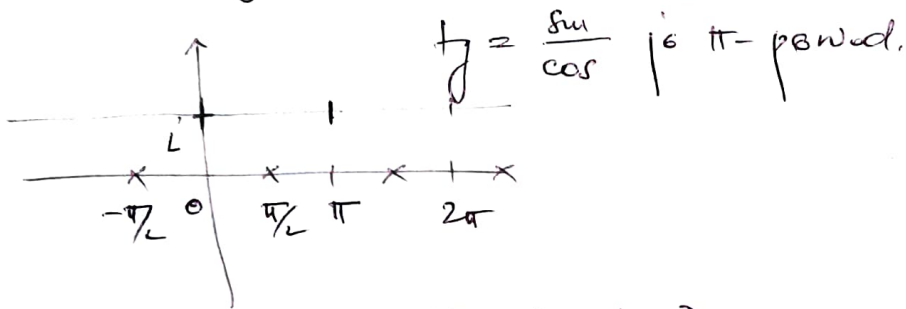 tg = sin/cos je π-period.
L
-π/2 0 π/2 π 2π